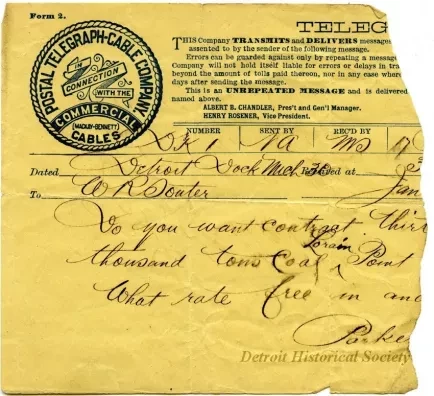 Form 2.
TELEG
POSTAL TELEGRAPH-CABLE COMPANY
IN CONNECTION WITH THE
COMMERCIAL
(MACKAY-BENNETT)
CABLES
THIS Company TRANSMITS and DELIVERS messages
assented to by the sender of the following message.
Errors can be guarded against only by repeating a message
Company will not hold itself liable for errors or delays in tra
beyond the amount of tolls paid thereon, nor in any case where
days after sending the message.
This is an UNREPEATED MESSAGE and is delivered
named above.
ALBERT B. CHANDLER, Pres't and Gen'l Manager.
HENRY ROSENER, Vice President.
NUMBER SENT BY REC'D BY
DK 1 NA
Dated Detroit Dock Mich 30 Received at Jan
To W R Souter
Do you want contract thir
thousand tons Coal Lorain Point
What rate free in and
Parke
Detroit Historical Society